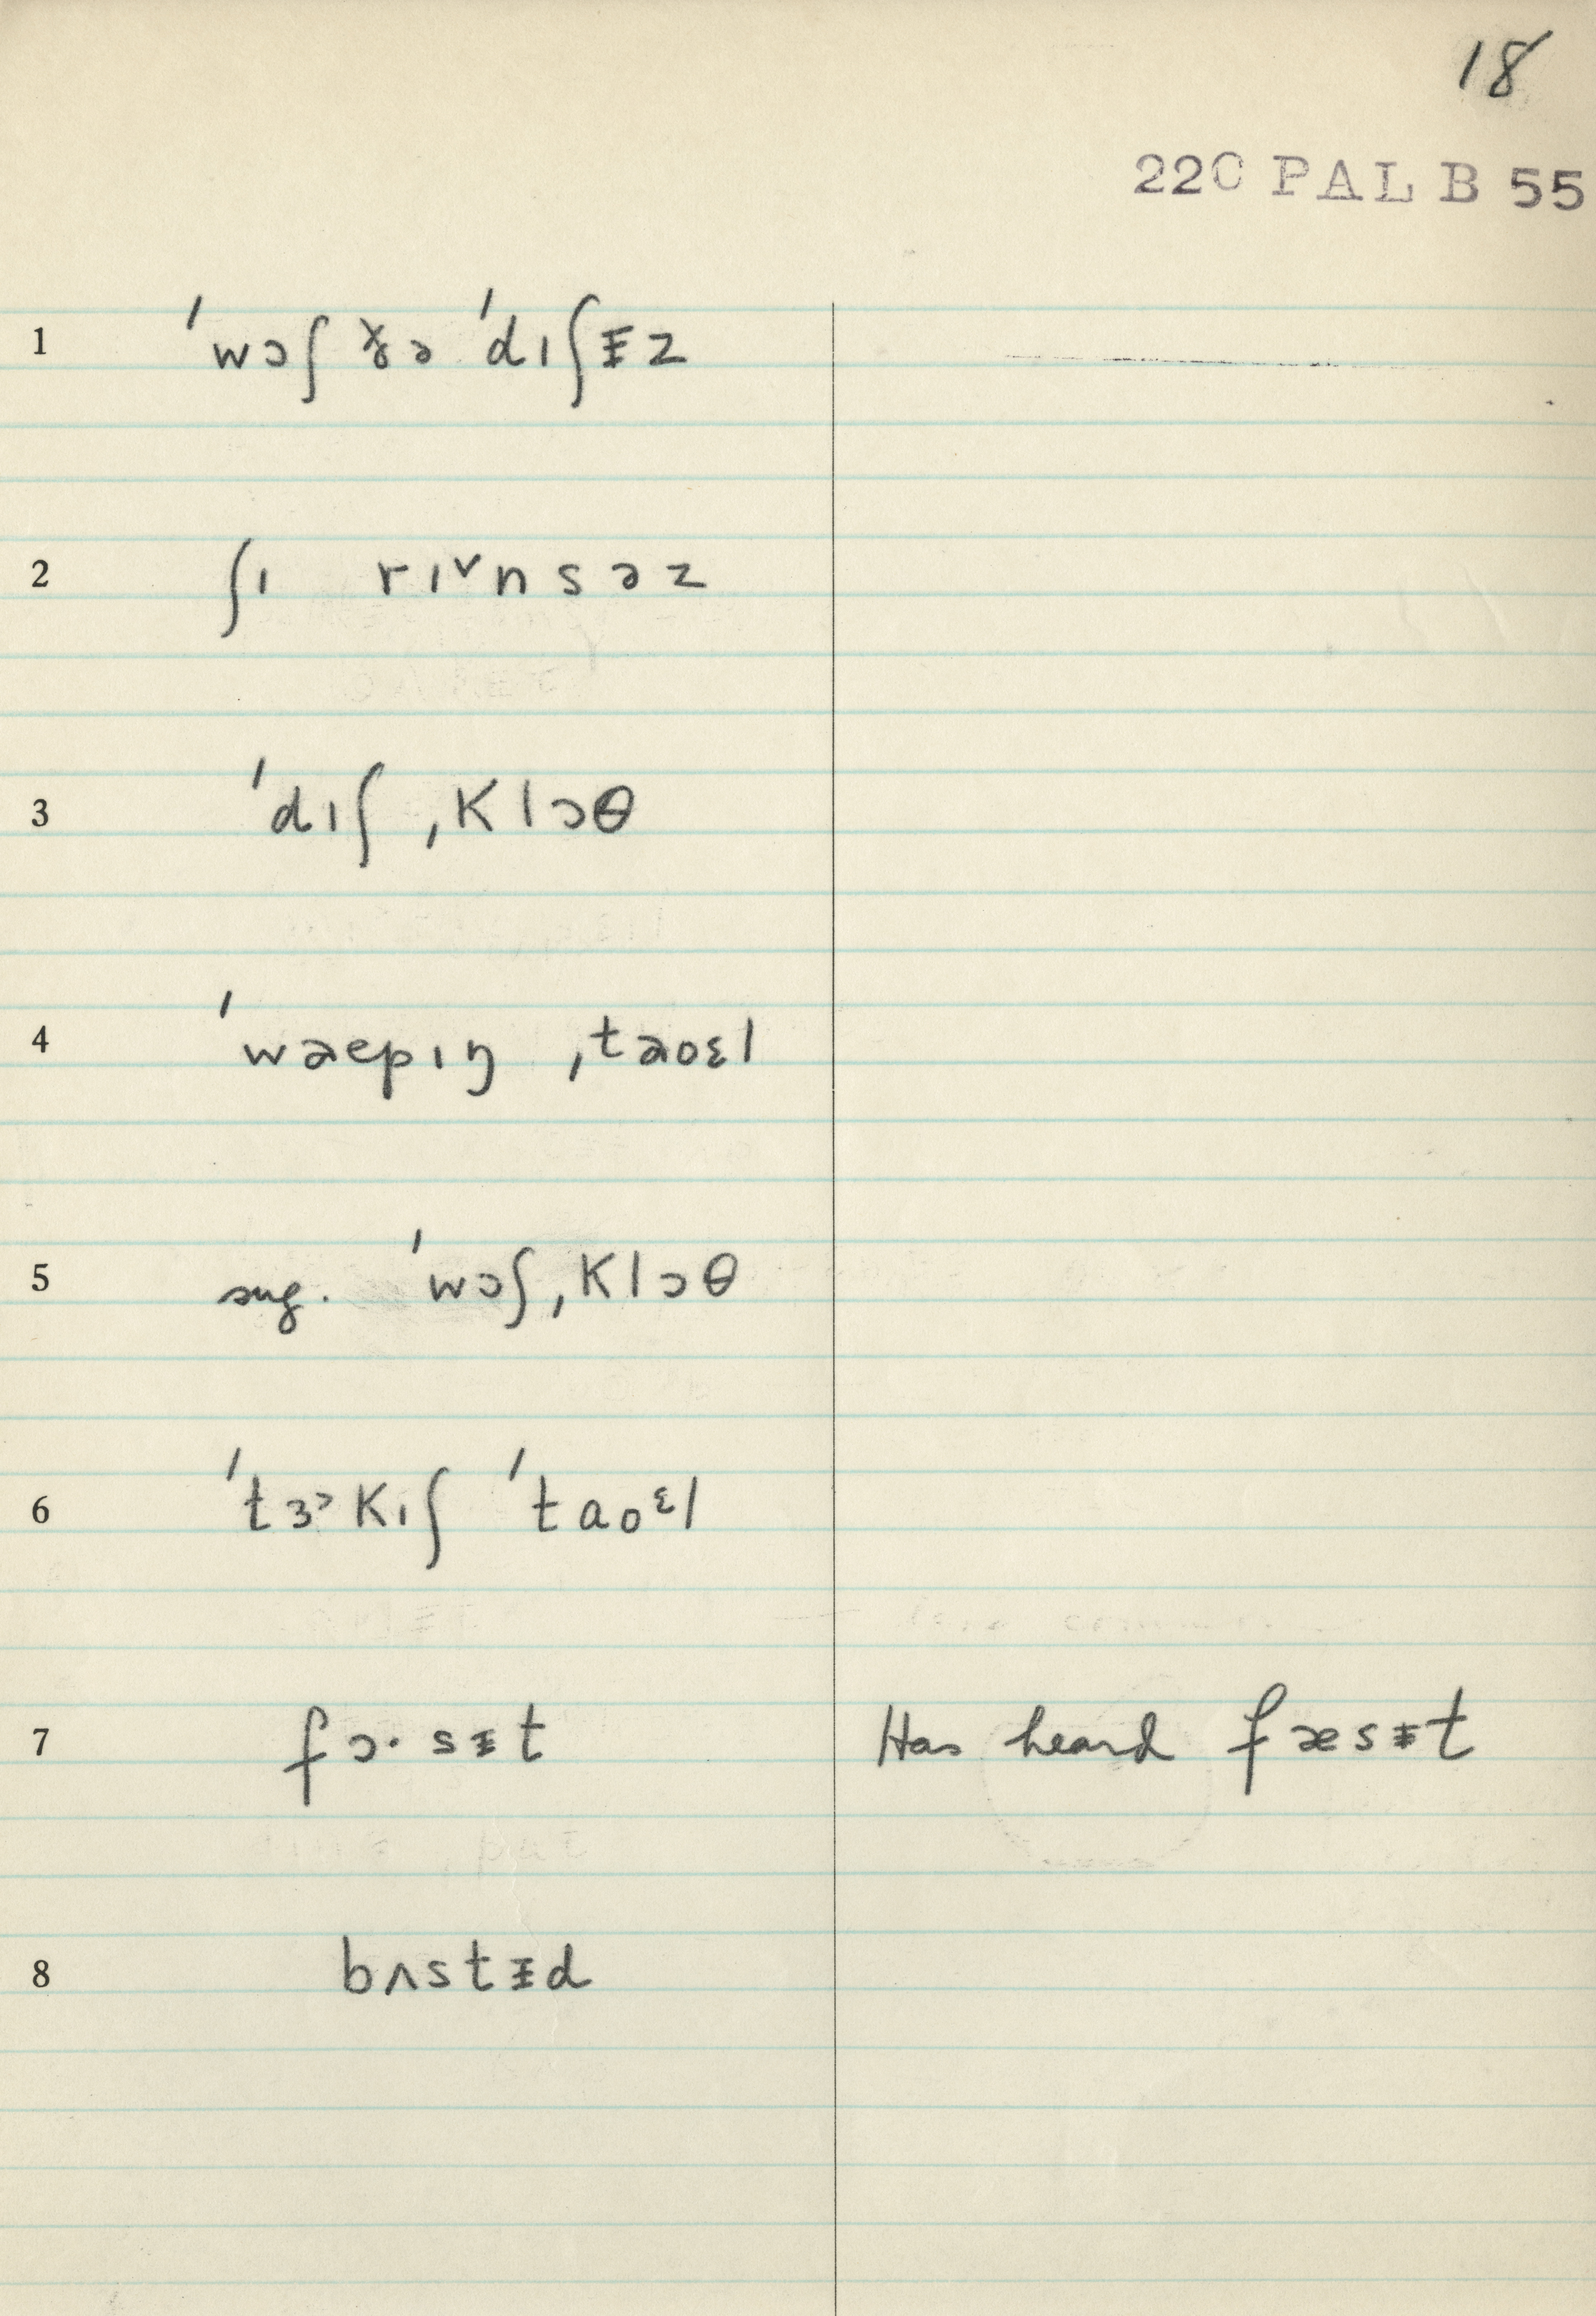 18
220 PAL B 55
1 ˈwɔʃ ðə ˈdɪʃɨz
2 ʃɪ rɪᵛnsəz
3 ˈdɪʃ ˌklɔθ
4 ˈwaepɪŋ ˌtaoɛl
5 sug. ˈwɔʃ ˌklɔθ
6 ˈtɜ˞kɪʃ ˈtaoᵋl
7 fɔ·sɨt Has heard fæsɨt
8 bʌstɨd